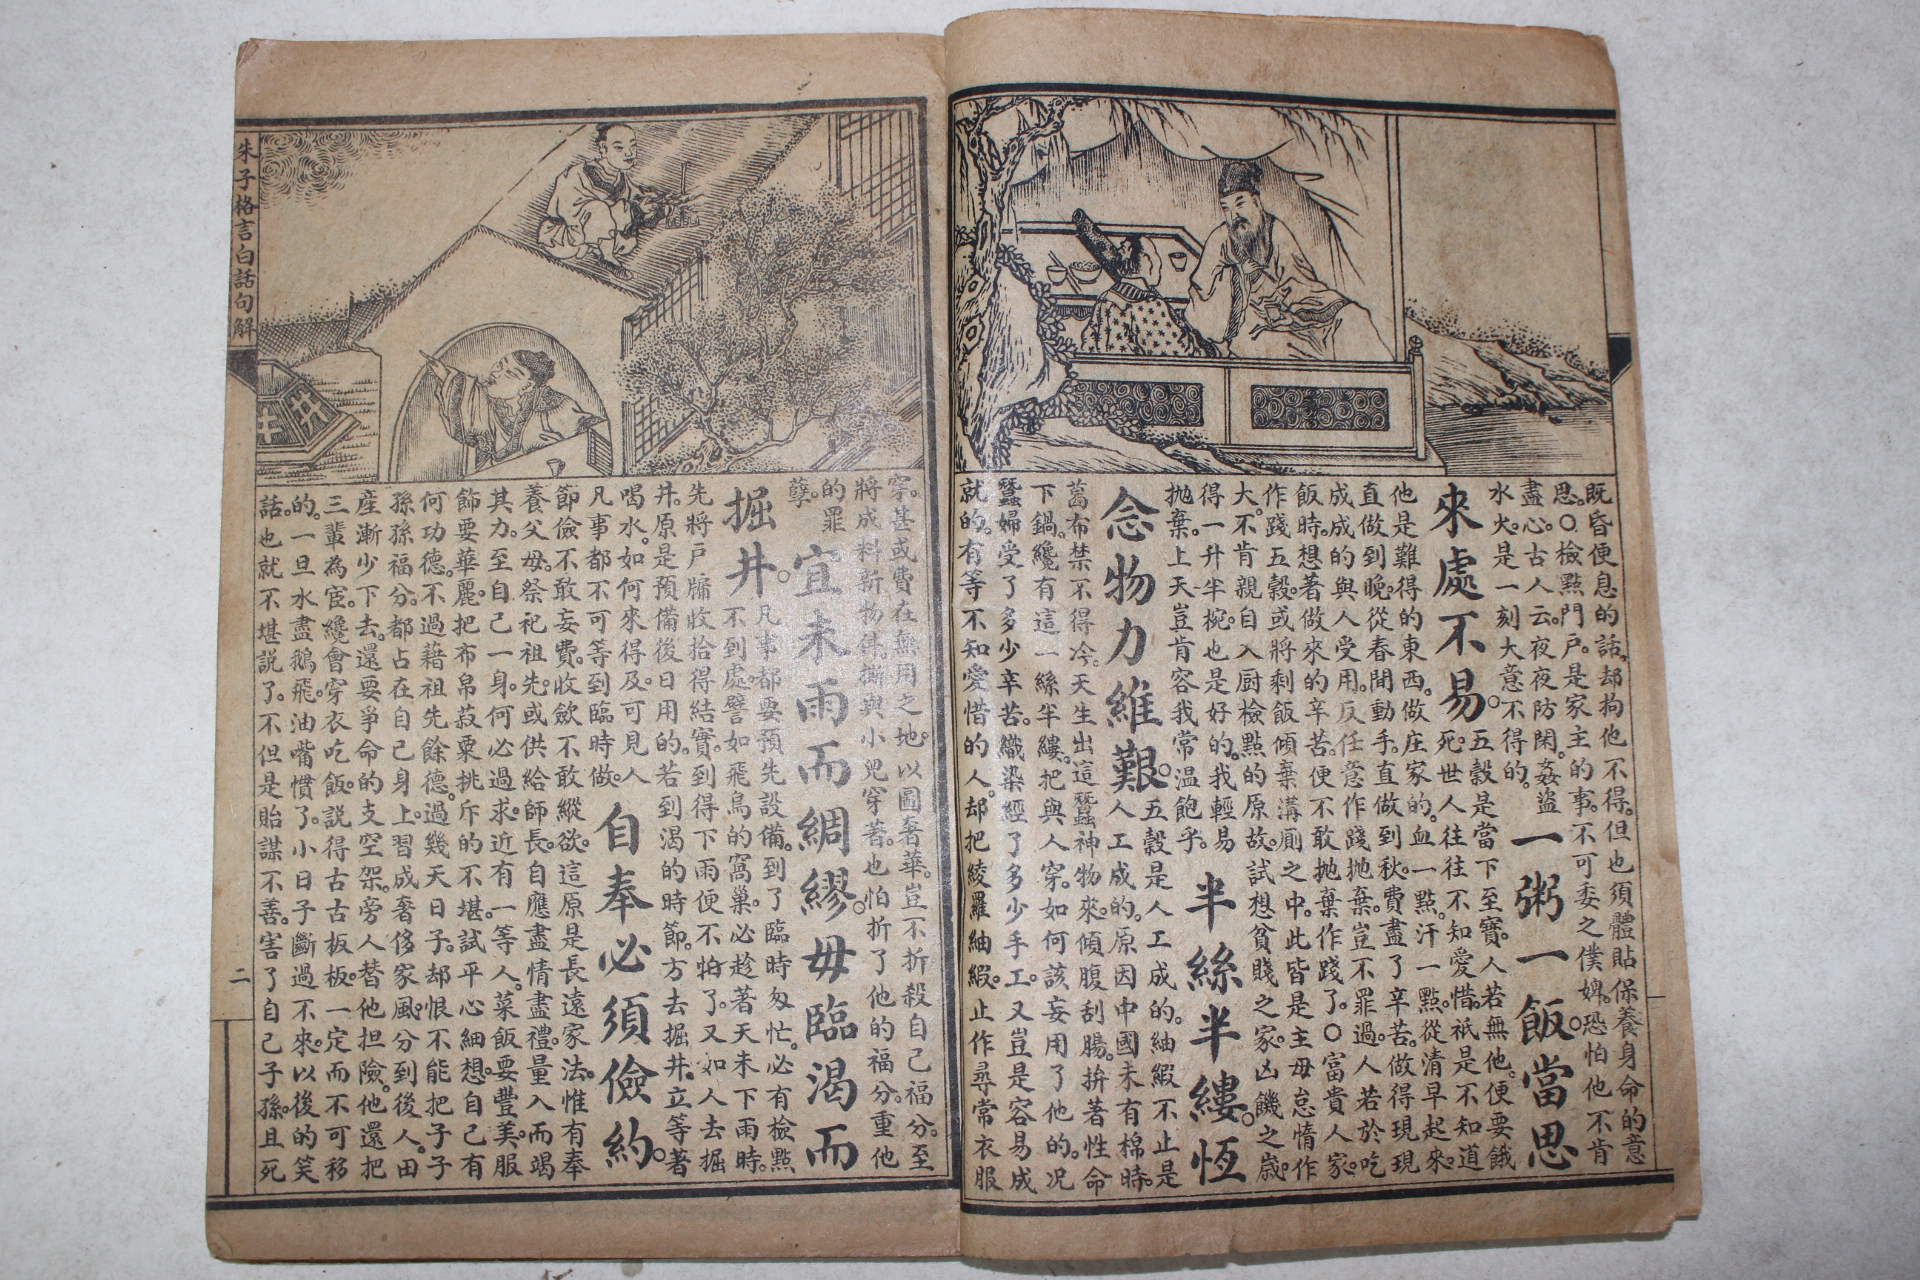 既昏便息的話却拘他不得但也須體貼保養身命的意
思○檢點門戶是家主的事不可委之僕婢恐怕他不肯
盡心古人云夜夜防閑姦盜
水火是一刻大意不得的
一粥一飯當思
來處不易
五穀是當下至寶人若無他便要餓
死世人往往不知愛惜祇是不知道
他是難得的東西做庄家的血一點汗一點從清早起來
直做到晚從春間動手直做到秋費盡了辛苦做得現現
成成的與人受用反任意作踐拋棄豈不罪過人若於吃
飯時想著做來的辛苦便不敢拋棄作踐了○富貴人家
作踐五穀或將剩飯傾棄溝廁之中此皆是主母怠惰作
大不肯親自入厨檢點的原故試想貧賤之家凶饑之歲
得一升半碗也是好的我輕易
拋棄上天豈肯容我常溫飽乎
半絲半縷恆
念物力維艱
五穀是人工成的紬緞不止是
人工成的原因中國未有棉時
葛布禁不得冷天生出這蠶神物來傾腹刮腸拚著性命
下鍋纔有這一絲半縷把與人穿如何該妄用了他的况
蠶婦受了多少辛苦織染經了多少手工又豈是容易成
就的有等不知愛惜的人却把綾羅紬緞止作尋常衣服
穿甚或費在無用之地以圖奢華豈不折殺自己福分至
將成料新物件撕與小兒穿著也怕折了他的福分重他
的罪
孽
宜未雨而綢繆毋臨渴而
掘井
凡事都要預先設備到了臨時匆忙必有檢點
不到處譬如飛鳥的窩巢必趁著天未下雨時
先將戶牖收拾得結實到得下雨便不怕了又如人去掘
井原是預備後日用的若到渴的時節方去掘井立等著
喝水如何來得及可見人
凡事都不可等到臨時做
自奉必須儉約
節儉不敢妄費收歛不敢縱欲這原是長遠家法惟有奉
養父母祭祀祖先或供給師長自應盡情盡禮量入而竭
其力至自己一身何必過求近有一等人菜飯要豐美服
飾要華麗把布帛菽粟挑斥的不堪試平心細想自己有
何功德不過藉祖先餘德過幾天日子却恨不能把子子
孫孫福分都占在自己身上習成奢侈家風分到後人田
産漸少下去還要爭命的支空架旁人替他担險他還把
三輩為宦纔會穿衣吃飯說得古古板板一定而不可移
的一旦水盡鵝飛油嘴慣了小日子斷過不來以後的笑
話也就不堪説了不但是貽謀不善害了自己子孫且死
朱子格言白話句解
二
井